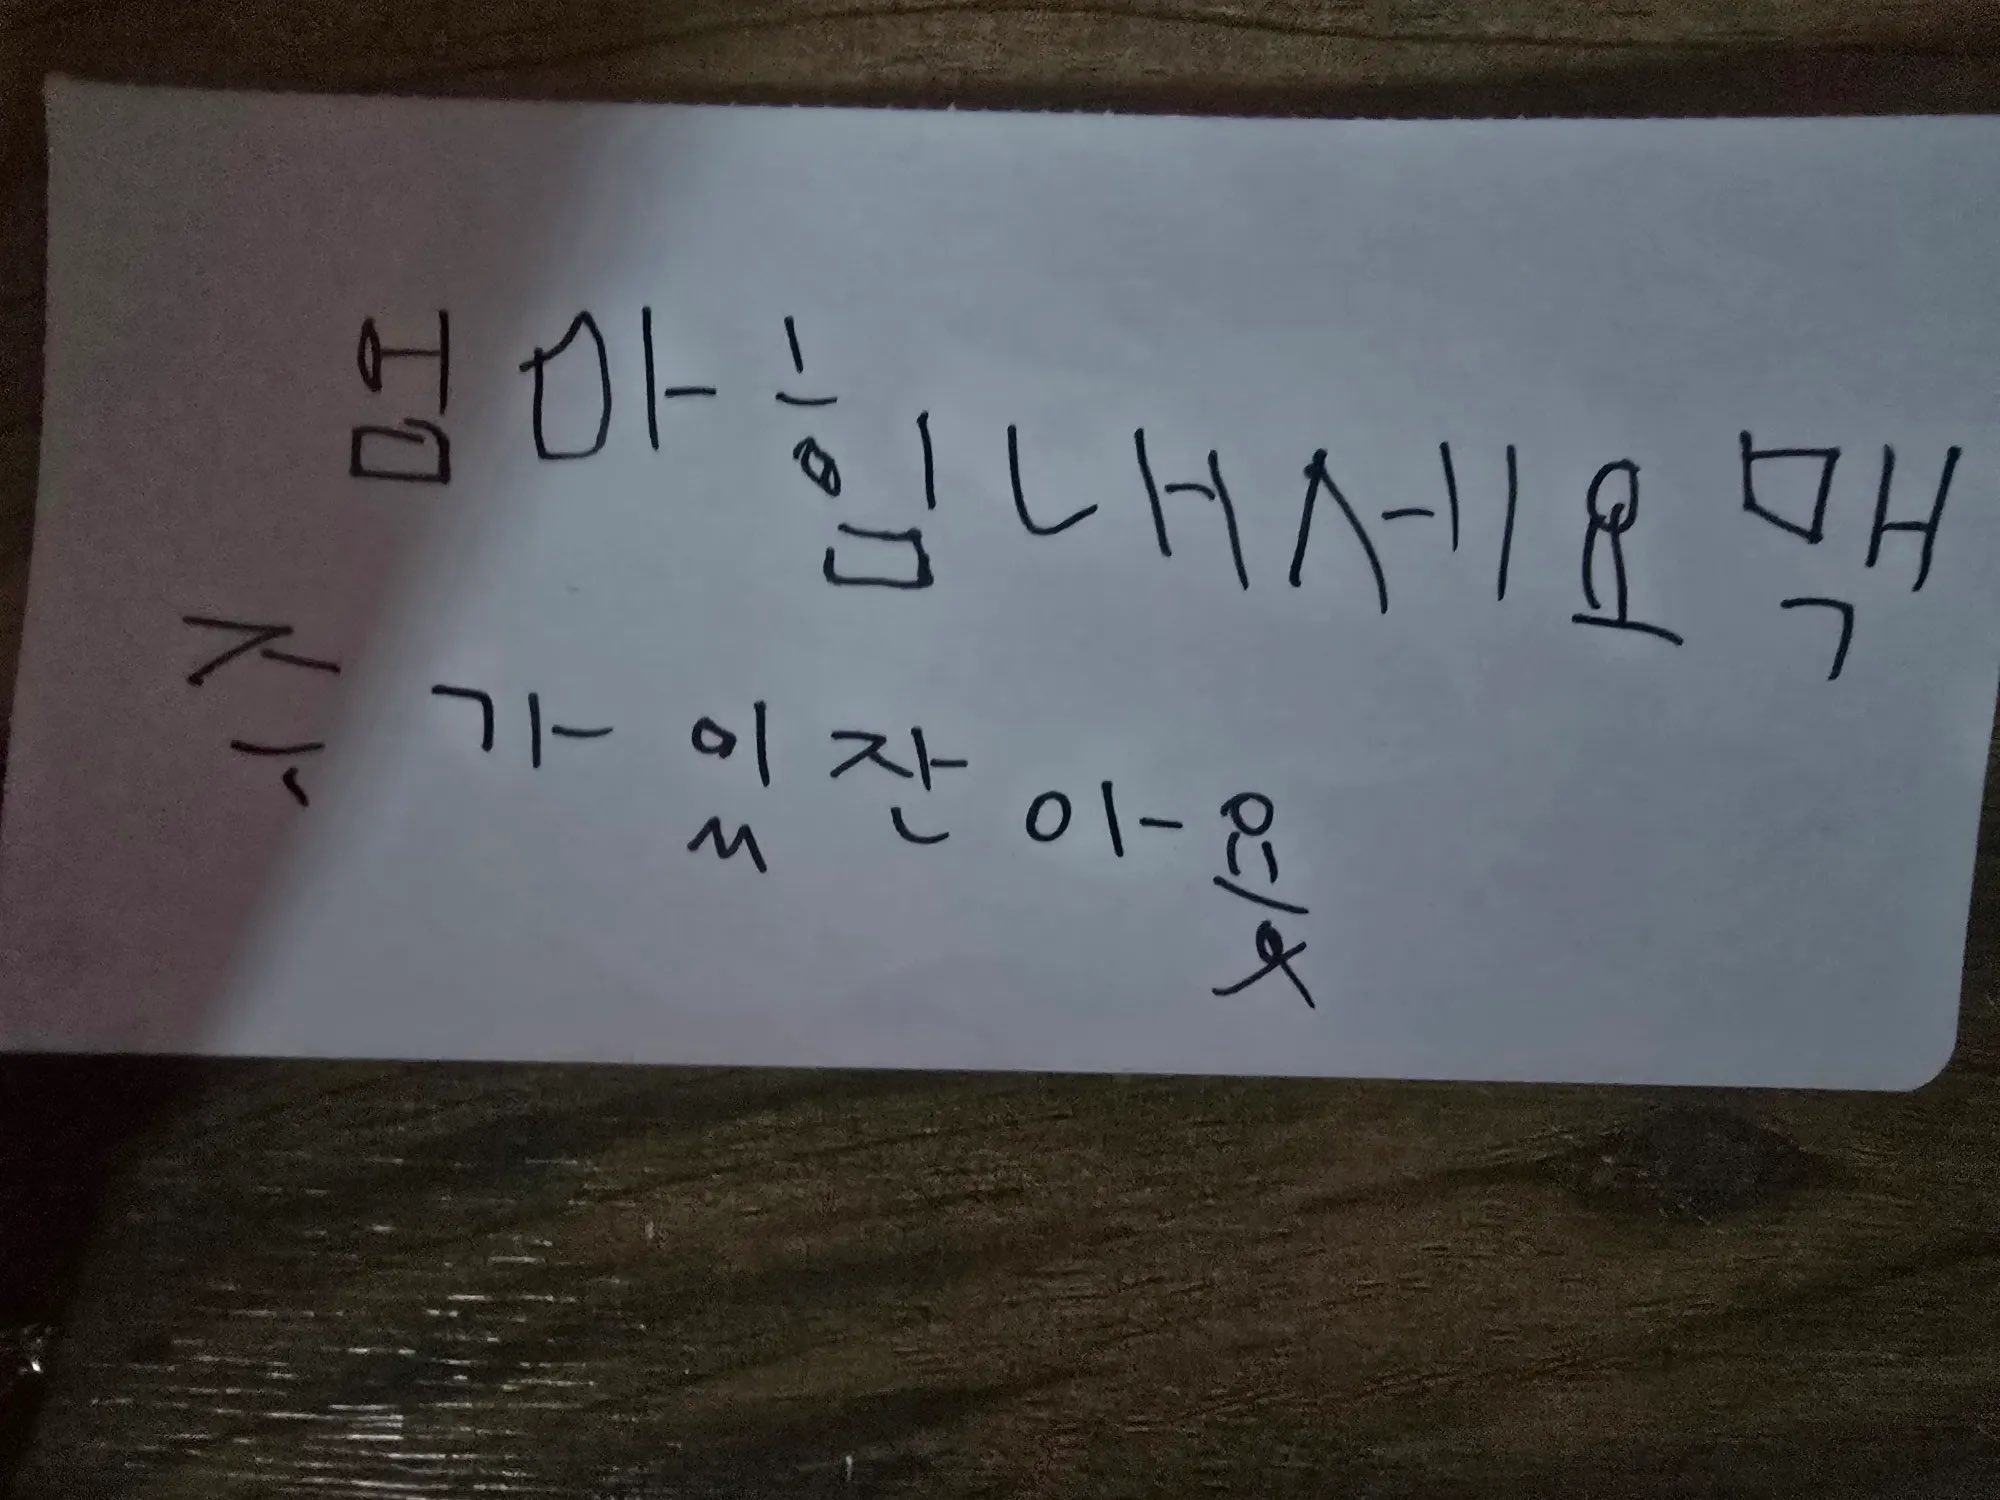 엄마힘내세요맥
주가있잖아욧